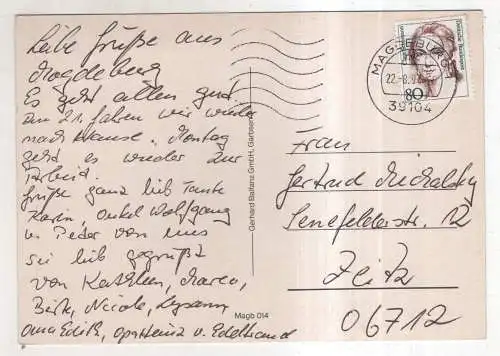 Liebe Grüße aus
Magdeburg
Es geht allen gut.
Am 21. fahren wir wieder
nach Hause. Montag
geht es wieder zur
Arbeit.
Grüße ganz lieb Tante
Karin, Onkel Wolfgang
u. Peter von uns
sei lieb gegrüßt
von Kathleen, Marco,
Birk, Nicole,
Oma Edith, Opa Heinz u. Edeltraud
Gerhard Balfanz GmbH,
Magb 014
MAGDEBURG
22.-8.97
39104
80
Deutsche Bundespost
Frau
Gertrud Michalsky
Senefelderstr. 12
Zeitz
06712